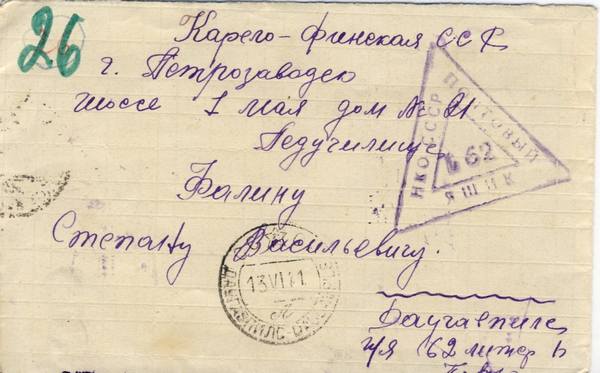 26
Карело-Финская ССР
г. Петрозаводск
шоссе 1 мая дом № 21
Педучилище
Фалину
Степану Васильевичу.
НКО-СССР
ПОЧТОВЫЙ
ЯЩИК
62
13 VI 41
Даугавпилс
п/я 62 литер Ь